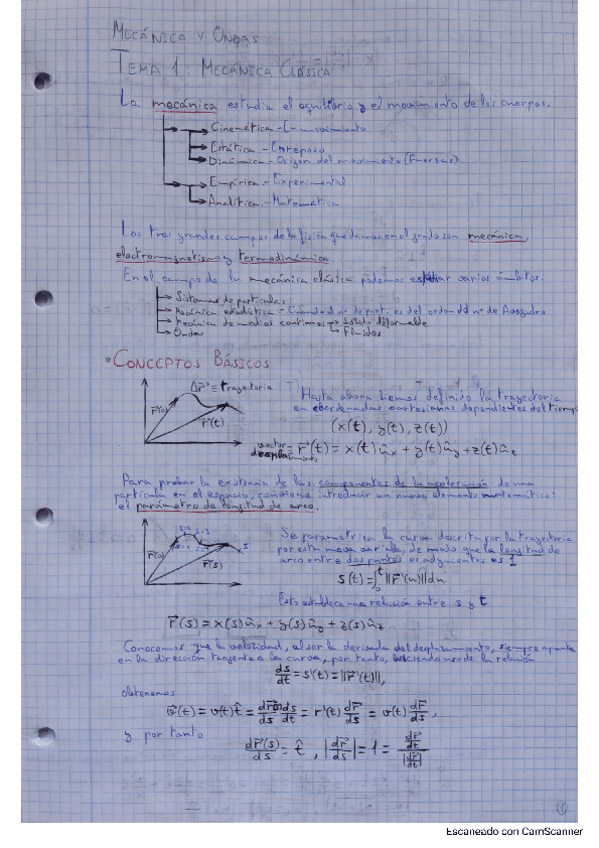 MECÁNICA Y ONDAS
TEMA 1: MECÁNICA CLÁSICA
La mecánica estudia el equilibrio y el movimiento de los cuerpos.
Cinemática.- En movimiento
Estática.- En reposo
Dinámica.- Origen del movimiento (Fuerzas)
Empírica.- Experimental
Analítica.- Matemática
Los tres grandes campos de la física que damos en el grado son mecánica,
electromagnetismo y termodinámica
En el campo de la mecánica clásica podemos estudiar varios ámbitos.
Sistemas de partículas
Mecánica estadística - Cuando el nº de part. es del orden del nº de Avogadro.
Mecánica de medios continuos → Sólido deformable
→ Fluidos
Ondas
• CONCEPTOS BÁSICOS
Δr⃗ ≡ trayectoria
r⃗(0)
r⃗(t)
Hasta ahora hemos definido la trayectoria
en coordenadas cartesianas dependientes del tiempo
(x(t), y(t), z(t))
vector desplazamiento = r⃗(t) = x(t)û_x + y(t)û_y + z(t)û_z
Para probar la existencia de las componentes de la aceleración de una
partícula en el espacio, conviene introducir un nuevo elemento matemático:
el parámetro de longitud de arco.
r⃗(0)
r⃗(s)
s
Se parametriza la curva descrita por la trayectoria
por esta nueva variable, de modo que la longitud de
arco entre dos puntos adyacentes es 1
s(t) = ∫₀ᵗ ||r⃗'(u)||du
Esto establece una relación entre s y t
r⃗(s) = x(s)û_x + y(s)û_y + z(s)û_z
Conocemos que la velocidad, al ser la derivada del desplazamiento, siempre apunta
en la dirección tangente a la curva, por tanto, haciendo uso de la relación
ds/dt = s'(t) = ||r⃗'(t)||,
obtenemos
v⃗(t) = v(t)t̂ = dr⃗(s)/ds ds/dt = r'(t) dr⃗/ds = v(t) dr⃗/ds,
y por tanto
dr⃗(s)/ds = t̂, |dr⃗/ds| = 1 = (dr⃗/dt)/|dr⃗/dt|
1
Escaneado con CamScanner